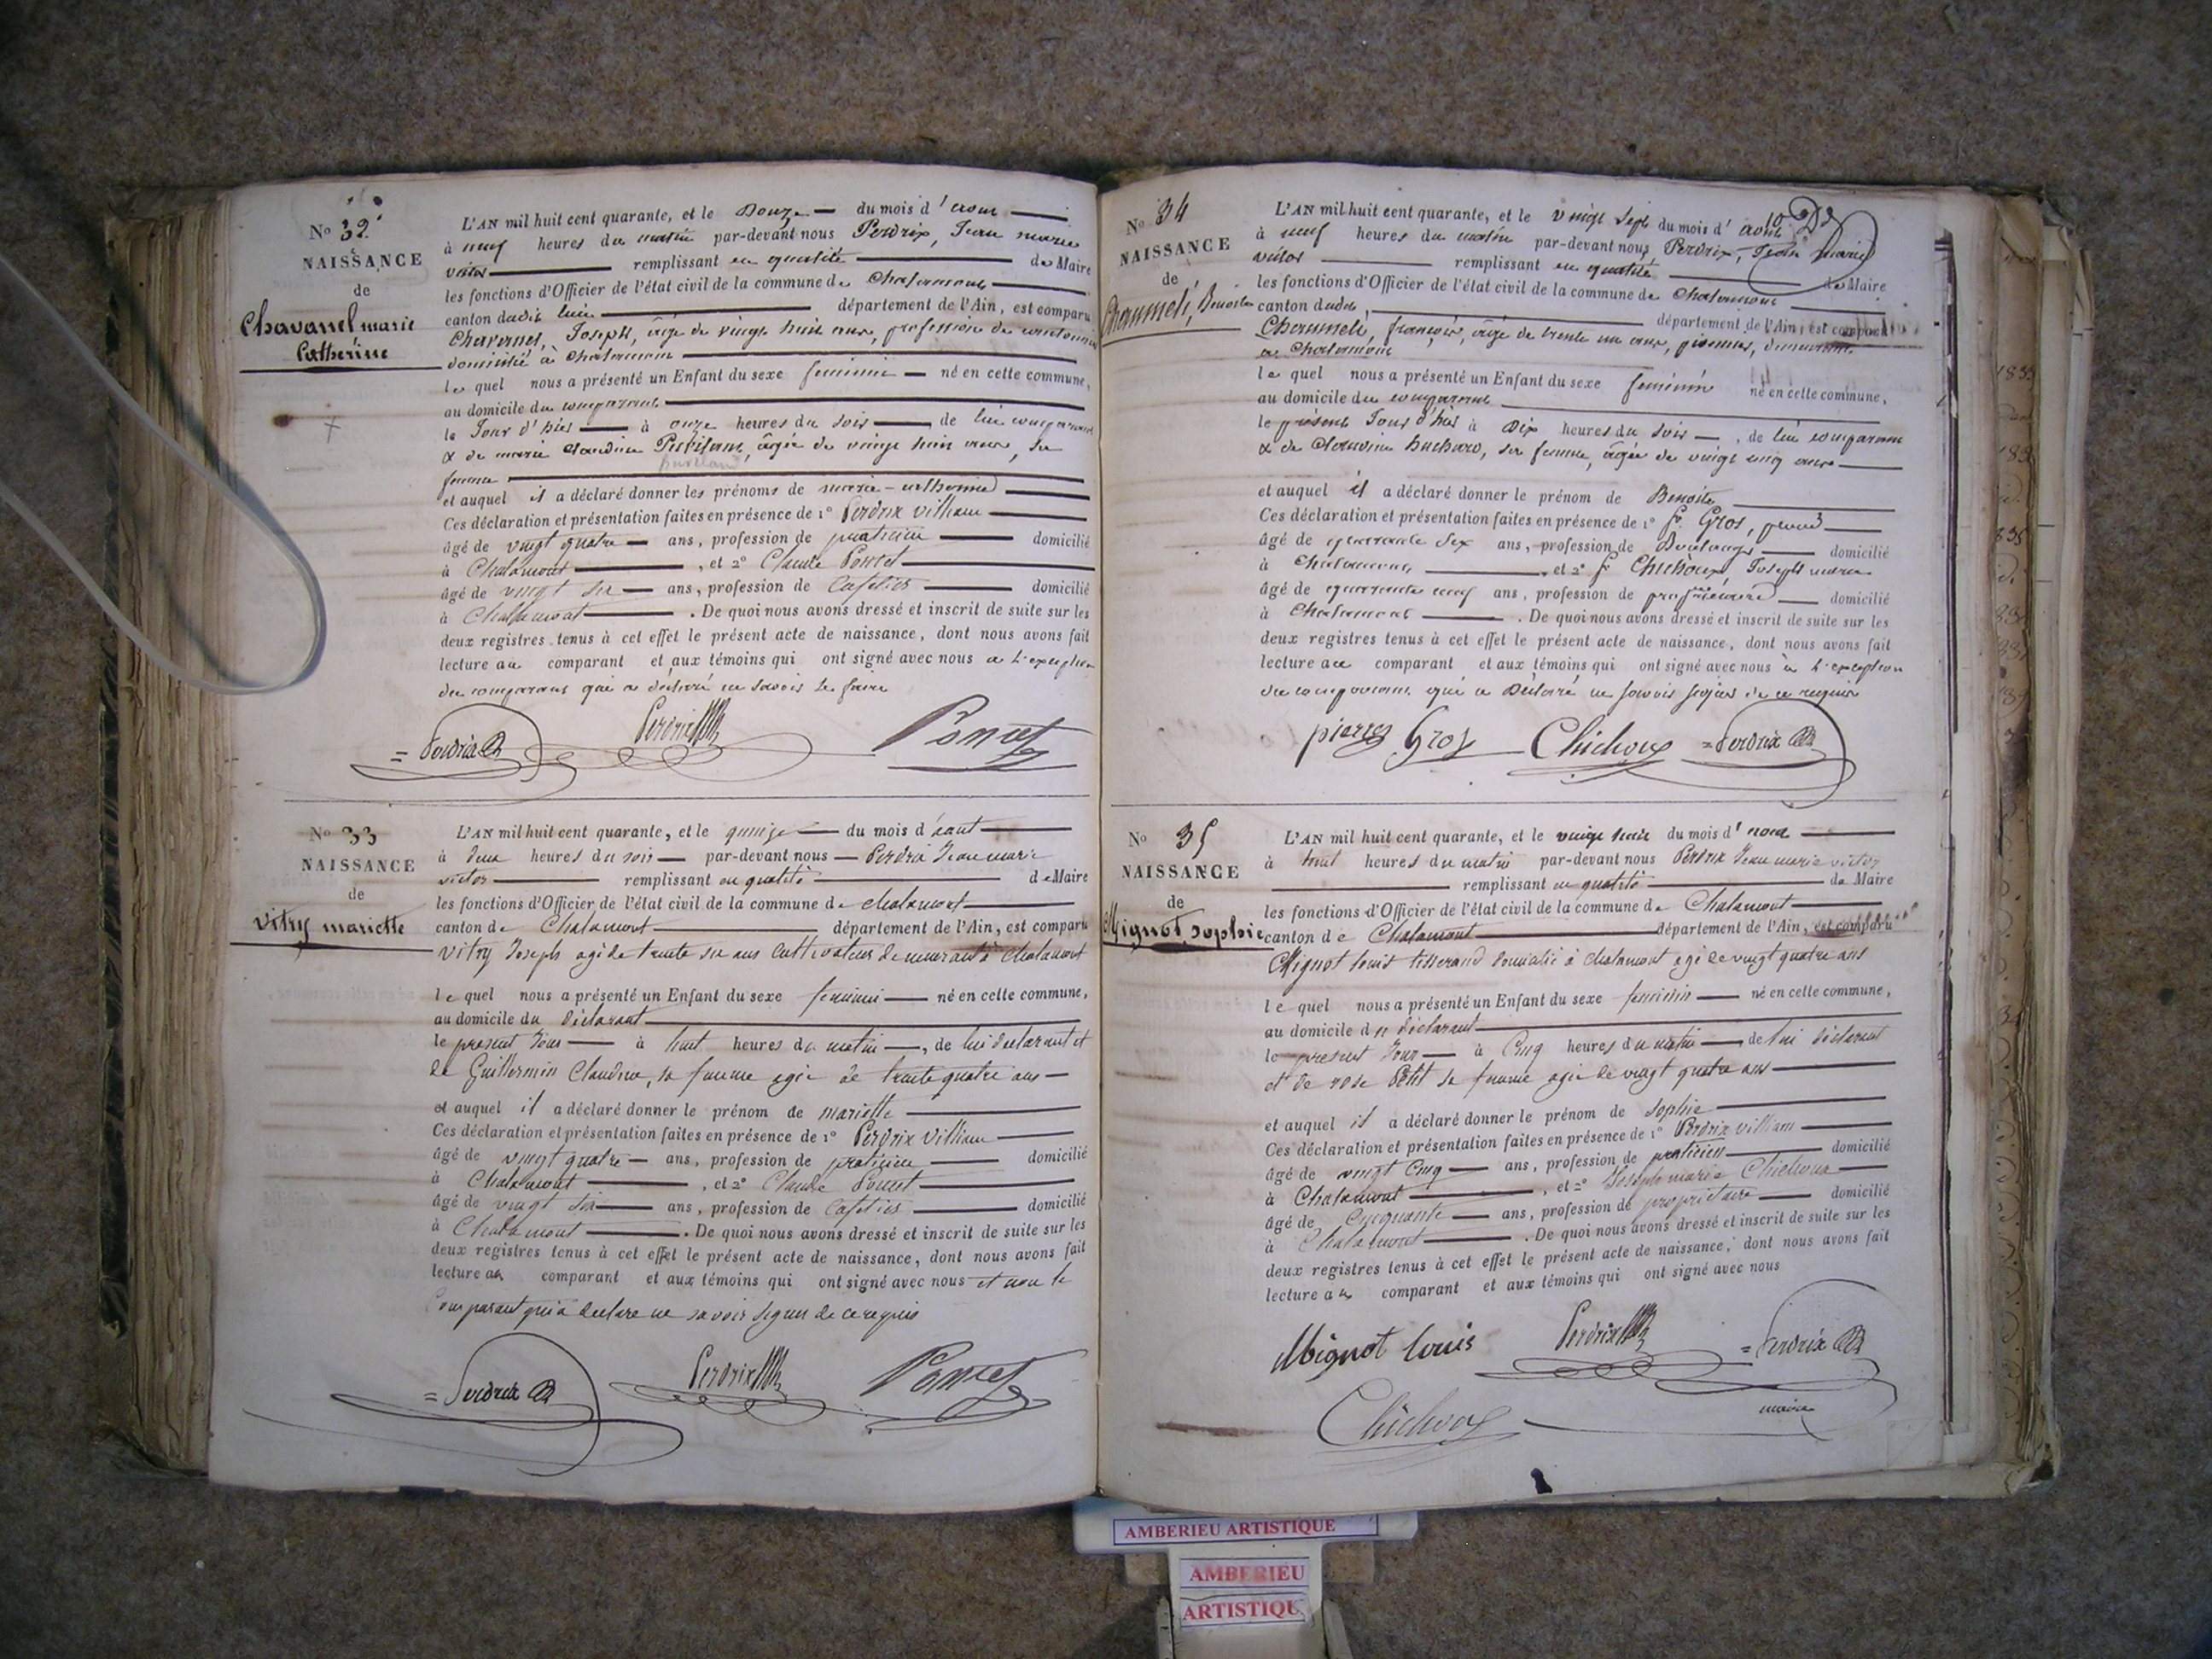 No 32
NAISSANCE
de
Chavanel marie
Catherine
L'AN mil huit cent quarante, et le Douze du mois d'aout
à neuf heures du matin par-devant nous Perdrix, Jean marie
victor remplissant en qualité de Maire
les fonctions d'Officier de l'état civil de la commune de Chalamont
canton dudit lieu département de l'Ain, est comparu
Chavanel, Joseph, âgé de vingt huit ans, profession de
domicilié à Chalamont
le quel nous a présenté un Enfant du sexe feminin né en cette commune,
au domicile du comparant
le Jour d'hier à onze heures du soir, de lui comparant
& de marie Claudine âgée de vingt huit ans, sa
femme
et auquel il a déclaré donner les prénoms de marie-catherine
Ces déclaration et présentation faites en présence de 1° Perdrix villiam
âgé de vingt quatre ans, profession de praticien domicilié
à Chalamont, et 2° Claude Poncet
âgé de vingt six ans, profession de Cafetier domicilié
à Chalamont. De quoi nous avons dressé et inscrit de suite sur les
deux registres tenus à cet effet le présent acte de naissance, dont nous avons fait
lecture au comparant et aux témoins qui ont signé avec nous a l'exception
du comparant qui a déclaré ne savoir le faire
Perdrix Perdrix Poncet
No 33
NAISSANCE
de
Vitry mariette
L'AN mil huit cent quarante, et le quinze du mois d'aout
à deux heures du soir par-devant nous Perdrix Jean marie
victor remplissant en qualité de Maire
les fonctions d'Officier de l'état civil de la commune de chalamont
canton de Chalamont département de l'Ain, est comparu
Vitry Joseph agé de trente six ans Cultivateur demeurant à Chalamont
le quel nous a présenté un Enfant du sexe feminin né en cette commune,
au domicile du déclarant
le present Jour à huit heures du matin, de lui declarant et
de Guillermin Claudine, sa femme agée de trente quatre ans
et auquel il a déclaré donner le prénom de mariette
Ces déclaration et présentation faites en présence de 1° Perdrix villiam
âgé de vingt quatre ans, profession de praticien domicilié
à Chalamont, et 2° Claude Poncet
âgé de vingt six ans, profession de Cafetier domicilié
à Chalamont. De quoi nous avons dressé et inscrit de suite sur les
deux registres tenus à cet effet le présent acte de naissance, dont nous avons fait
lecture au comparant et aux témoins qui ont signé avec nous et non le
Comparant qui a declare ne savoir signer de ce requis
Perdrix Perdrix Poncet
No 34
NAISSANCE
de
Chaumeli, Benoite
L'AN mil huit cent quarante, et le vingt sept du mois d'aout
à neuf heures du matin par-devant nous Perdrix, Jean marie
victor remplissant en qualité de Maire
les fonctions d'Officier de l'état civil de la commune de Chalamont
canton dudit département de l'Ain, est comparu
Chaumeli, françois, âgé de trente un ans, demeurant
à Chalamont
le quel nous a présenté un Enfant du sexe feminin né en cette commune,
au domicile du comparant
le présent Jour d'hier à Dix heures du soir, de lui comparant
& de Claudine sa femme, âgée de vingt cinq ans
et auquel il a déclaré donner le prénom de Benoite
Ces déclaration et présentation faites en présence de 1° Gros, pierre
âgé de quarante six ans, profession de Boulanger domicilié
à Chalamont, et 2° Chichoux Joseph marie
âgé de quarante neuf ans, profession de propriétaire domicilié
à Chalamont. De quoi nous avons dressé et inscrit de suite sur les
deux registres tenus à cet effet le présent acte de naissance, dont nous avons fait
lecture au comparant et aux témoins qui ont signé avec nous à l'exception
du comparant qui a Déclaré ne savoir signer de ce requis
pierre Gros Chichoux Perdrix
No 35
NAISSANCE
de
Mignot sophie
L'AN mil huit cent quarante, et le vingt huit du mois d'aout
à huit heures du matin par-devant nous Perdrix Jean marie victor
remplissant en qualité de Maire
les fonctions d'Officier de l'état civil de la commune de Chalamont
canton de Chalamont département de l'Ain, est comparu
Mignot Louis tisserand domicilié à chalamont agé de vingt quatre ans
le quel nous a présenté un Enfant du sexe feminin né en cette commune,
au domicile du déclarant
le present Jour à Cinq heures du matin de lui déclarant
et de rose Petit sa femme agée de vingt quatre ans
et auquel il a déclaré donner le prénom de sophie
Ces déclaration et présentation faites en présence de 1° Perdrix villiam
âgé de vingt Cinq ans, profession de praticien domicilié
à Chalamont, et 2° Joseph marie Chichoux
âgé de Cinquante ans, profession de propriétaire domicilié
à Chalamont. De quoi nous avons dressé et inscrit de suite sur les
deux registres tenus à cet effet le présent acte de naissance, dont nous avons fait
lecture au comparant et aux témoins qui ont signé avec nous
Mignot Louis Perdrix Perdrix
maire
Chichoux
AMBERIEU ARTISTIQUE
AMBERIEU
ARTISTIQUE